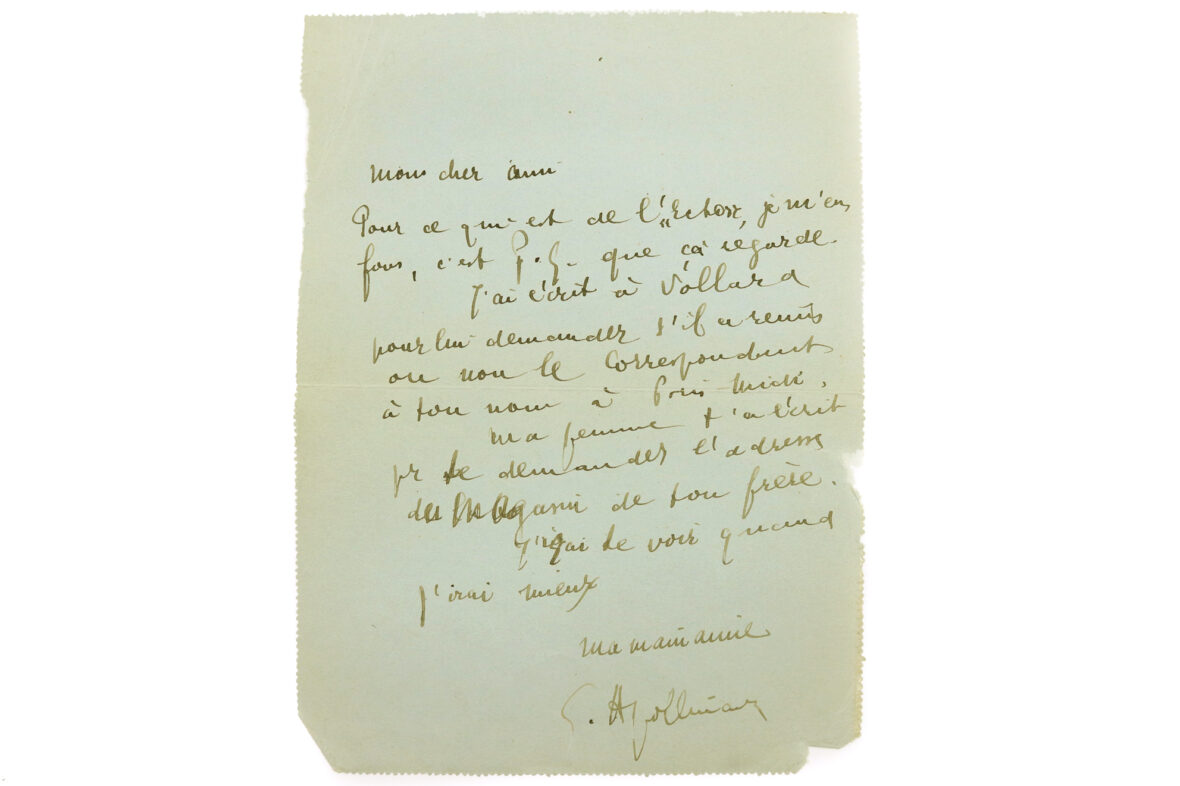 Mon cher ami
Pour ce qui est de l'"Echo", je m'en
fous, c'est P.G. que ça regarde.
J'ai écrit à Vollard
pour lui demander s'il a remis
ou non le Correspondant
à ton nom à Paris Midi.
Ma femme t'a écrit
pr te demander l'adresse
du Magasin de ton frère.
J'irai te voir quand
j'irai mieux
Ma main amie
G. Apollinaire